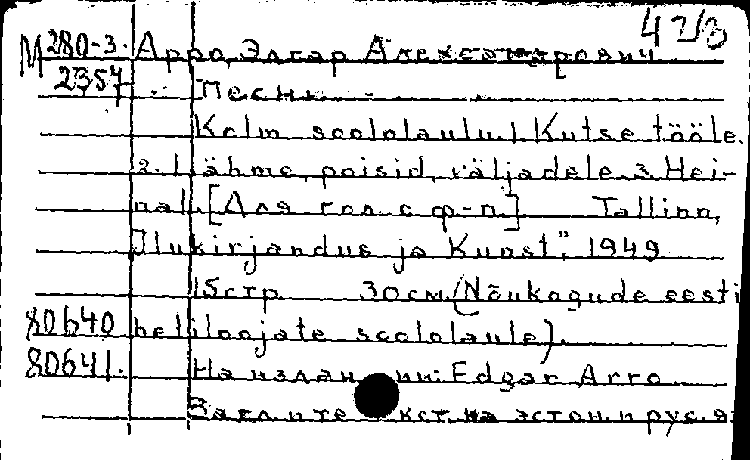 42/3
М 280-3. Арро, Элгар Александрович
2357 Песни.
Kolm soololaulu. 1. Kutse tööle.
2. Lähme, poisid, väljadele. 3. Hei-
nal. [Для гол. с ф-п.] Tallinn,
"Ilukirjandus ja Kunst", 1949
15 стр. 30 см. (Nõukogude eesti
80640 heliloojate soololaule).
80641. На издании: Edgar Arro
Загл. и текст на эстон. и рус. я